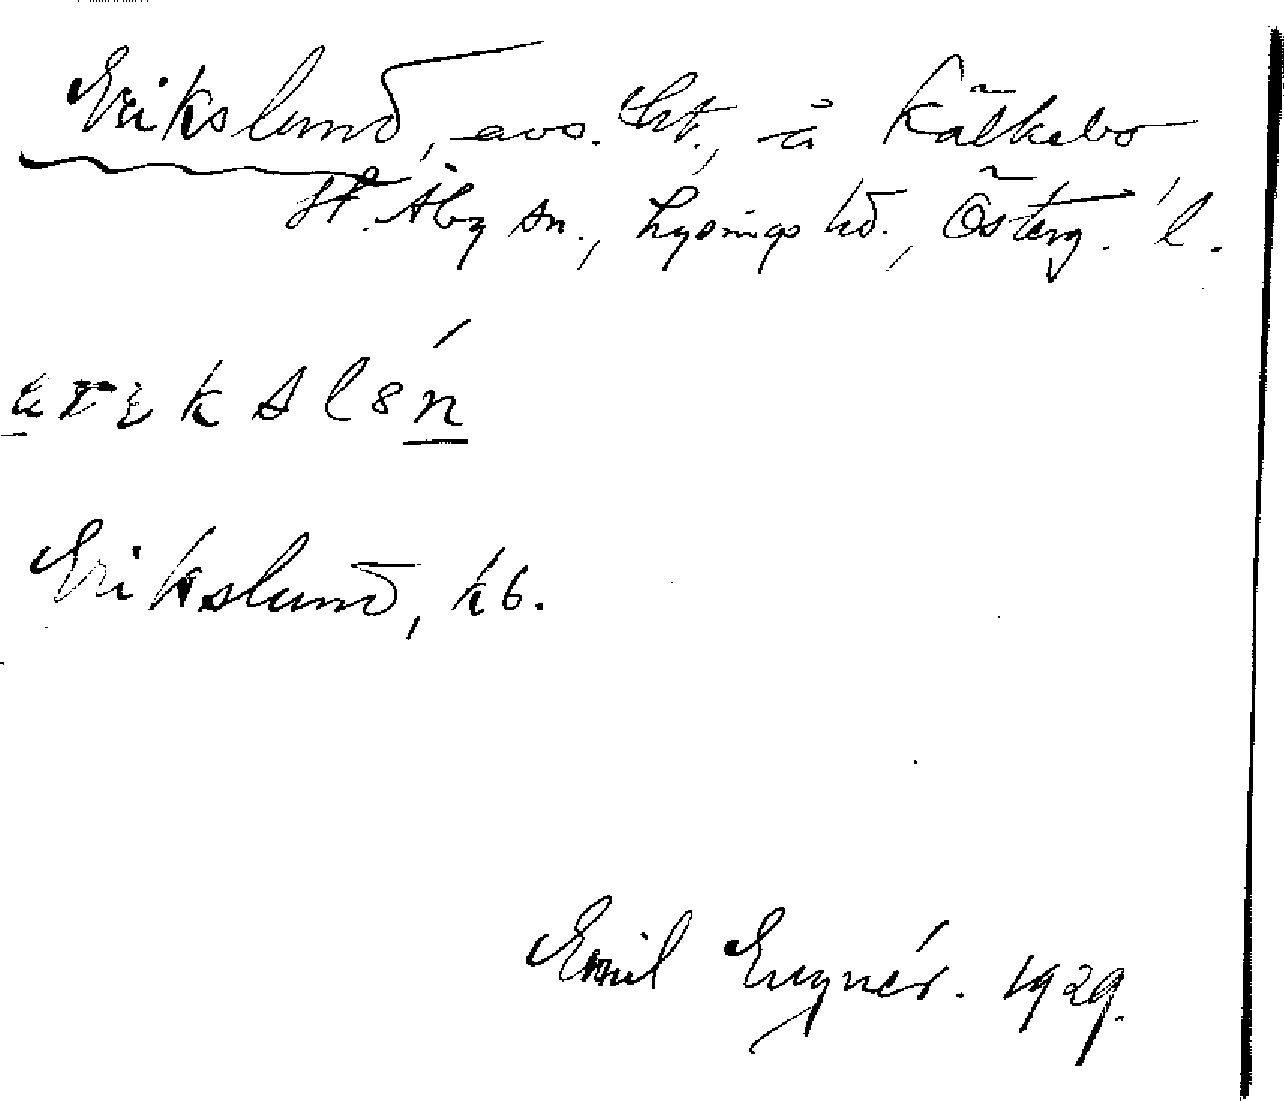 Erikslund, avs. lht., å Kälkebo
St. Åby sn., Lysings hd., Österg. l.
Erikslund, kb.
Emil Engnér. 1929.